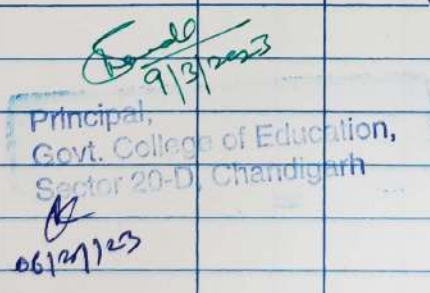 9/3/2023
Principal,
Govt. College of Education,
Sector 20-D, Chandigarh